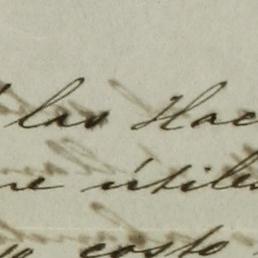 las Hac
útiles
costo